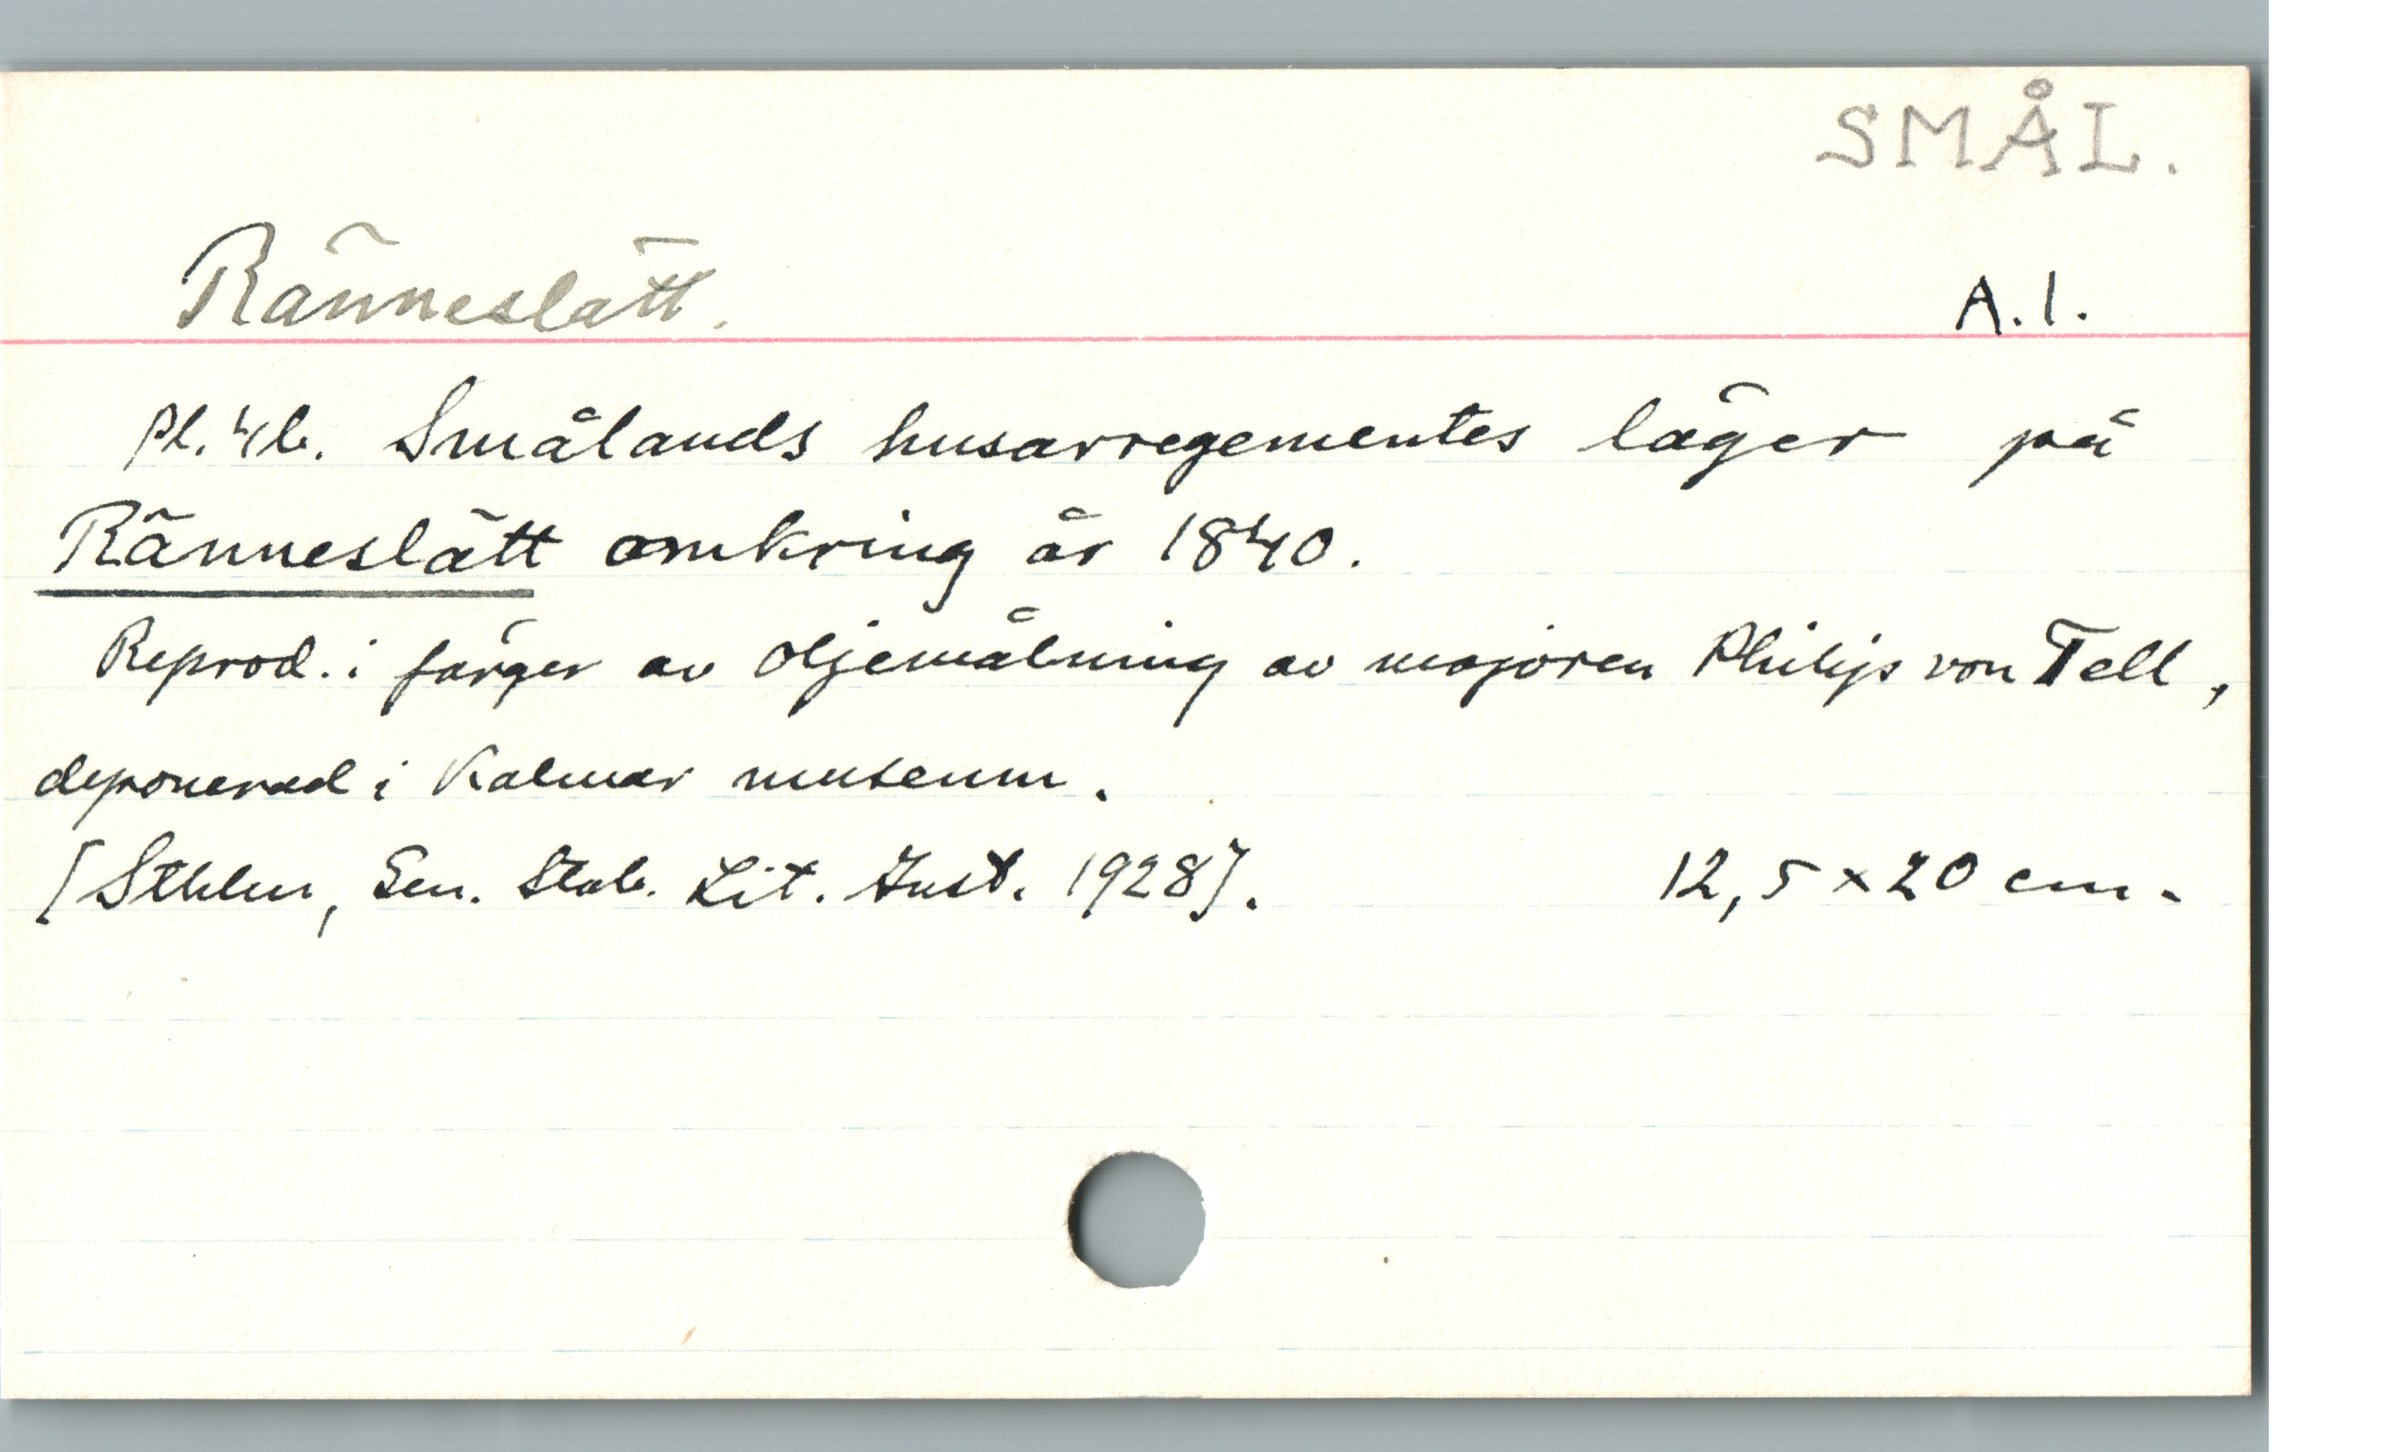 SMÅL.
Ränneslätt. A.1.
Pl. 4b. Smålands husarregementes läger på
Ränneslätt omkring år 1840.
Reprod. i färger av oljemålning av majoren Philip von Tell,
deponerad i Kalmar museum.
[Sthlm, Gen. Stab. Lit. Inst. 1928]. 12,5 x 20 cm.